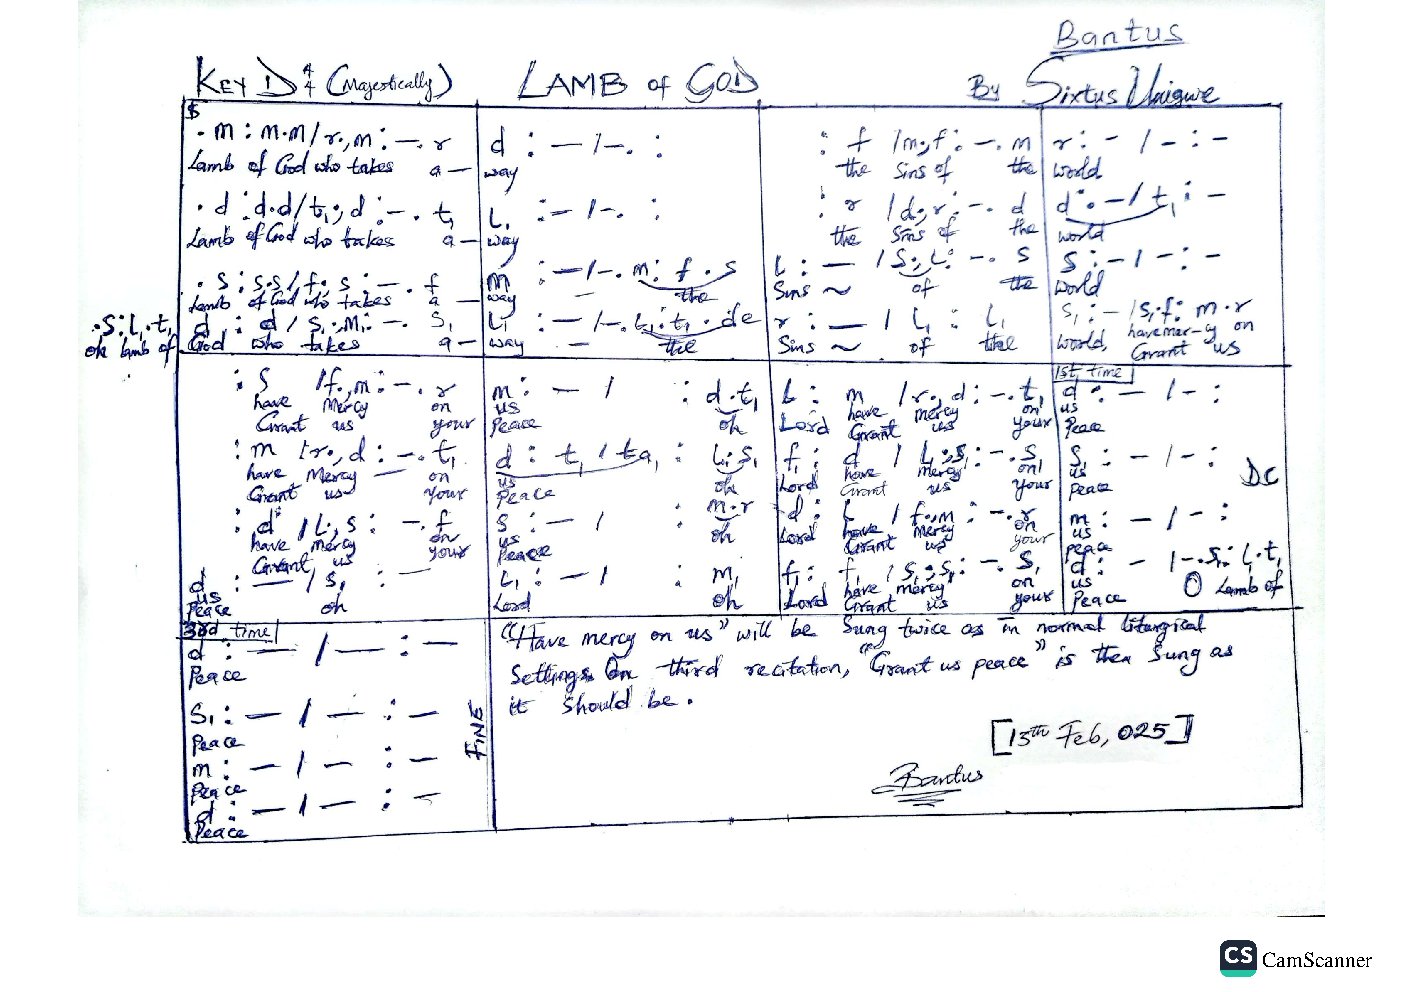 Bantus
KEY D 4/4 (Majestically) LAMB of GOD By Sixtus Unigwe
$
. m : m.m / r., m : – . r d : – / – . : : f / m., f : – . m r : – / – : –
Lamb of God who takes a – way the Sins of the world
. d : d.d / t₁., d : – . t₁ L₁ : – / – . : : r / d., r : – . d d : – / t₁ : –
Lamb of God who takes a – way the Sins of the world
. s : s.s / f., s : – . f m : – / – . m : f . s L : – / s., L : – . s s : – / – : –
Lamb of God who takes a – way – the Sins ~ of the world
. s₁ : L₁ . t₁ d : d / s₁., m₁ : – . s₁ L₁ : – / – . L₁ : t₁ . de r : – / L₁ : L₁ s₁ : – / s., f : m . r
oh Lamb of God who takes a – way – the Sins ~ of the world, have mer-cy on
Grant us
1st time
: s / f., m : – . r m : – / : d . t₁ L₁ : m / r., d : – . t₁ d : – / – :
have Mercy on us oh Lord have mercy on us
Grant us your Peace Grant us your Peace
: m / r., d : – . t₁ d : t₁ / ta₁ : L₁ . s₁ f₁ : d / L₁., s₁ : – . s₁ s₁ : – / – :
have Mercy – on us oh Lord have mercy on us
Grant us your Peace Grant us your peace
DC
: d' / L., s : – . f s : – / : m . r d : L / f., m : – . r m : – / – :
have mercy on us oh Lord have Mercy on us
Grant us your Peace Grant us your peace
d : – / s₁ : – L₁ : – / : m₁ f₁ : f₁ / s₁., s₁ : – . s₁ d : – / – . s₁ : L₁ . t₁
us oh Lord oh Lord have mercy on us O Lamb of
Peace Grant us your Peace
3rd time
d : – / – : –
Peace
s₁ : – / – : –
Peace
m : – / – : –
Peace
d : – / – : –
Peace
FINE
"Have mercy on us" will be Sung twice as in normal liturgical
Settings. On third recitation, "Grant us peace" is then Sung as
it should be.
[13th Feb, 025]
Bantus
CS CamScanner